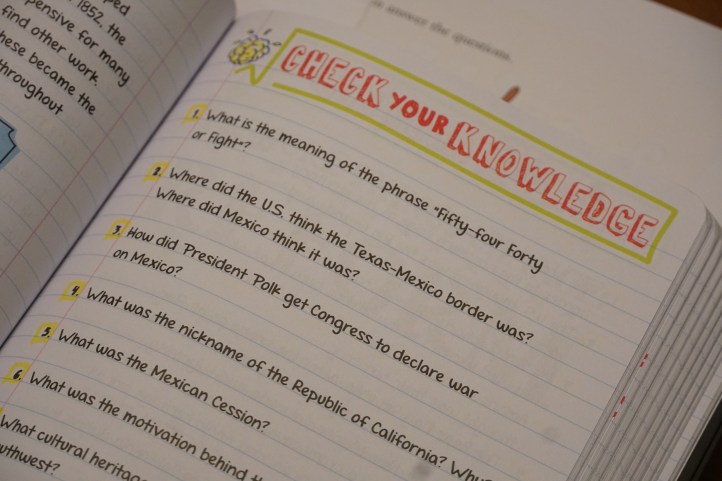 1852, the
pensive for many
find other work.
hese became the
throughout
answer the questions.
CHECK YOUR KNOWLEDGE
1. What is the meaning of the phrase "Fifty-four Forty
or Fight"?
2. Where did the U.S. think the Texas-Mexico border was?
Where did Mexico think it was?
3. How did President Polk get Congress to declare war
on Mexico?
4. What was the nickname of the Republic of California? Why
5. What was the Mexican Cession?
6. What was the motivation behind
What cultural heritag
uthwest?